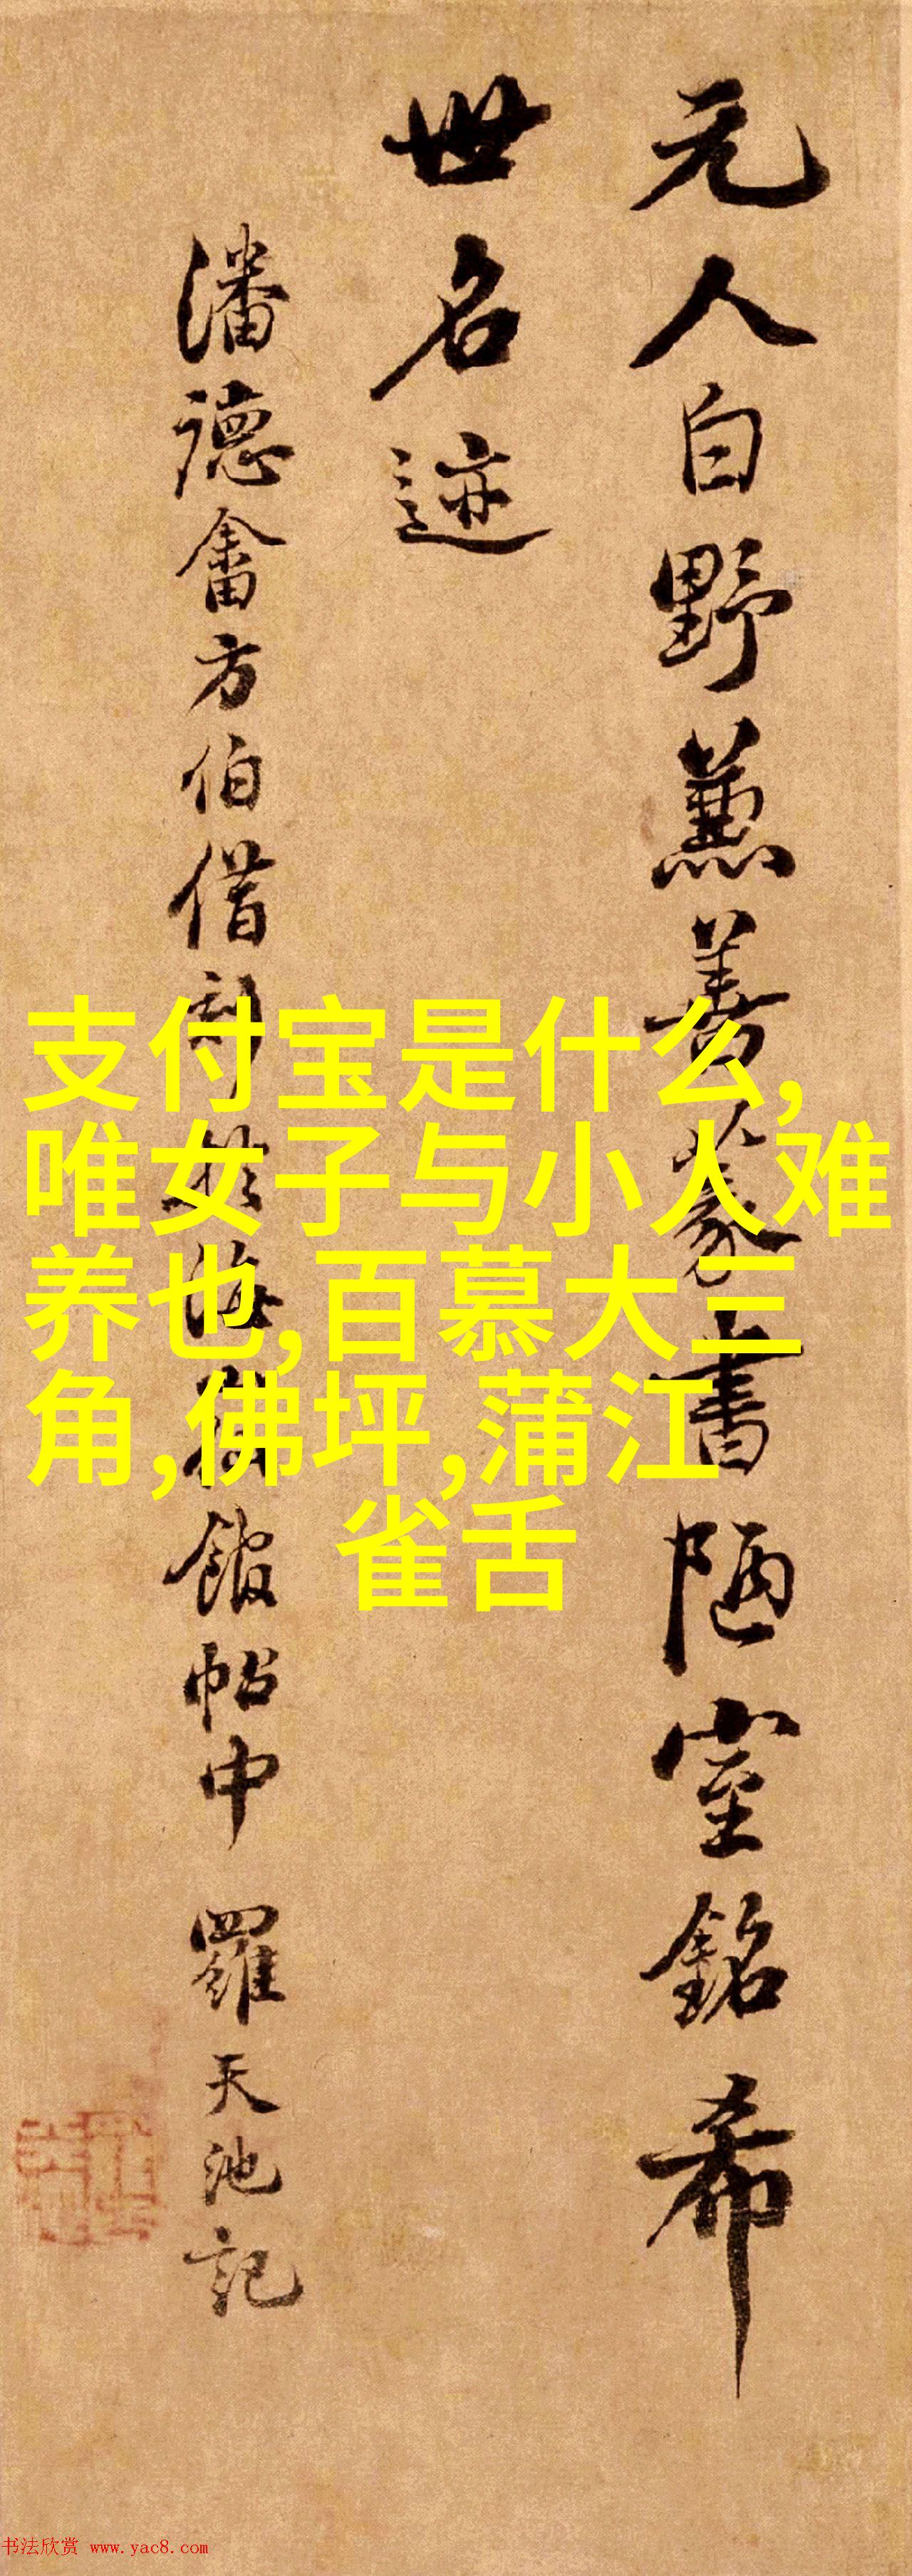 元人白野薰善篆書陋室銘希
世名迹
潘德畬方伯借刻於海山仙館帖中 羅天池記
支付宝是什么,
唯女子与小人难
养也,百慕大三
角,佛坪,蒲江
雀舌
书法欣赏 www.yac8.com